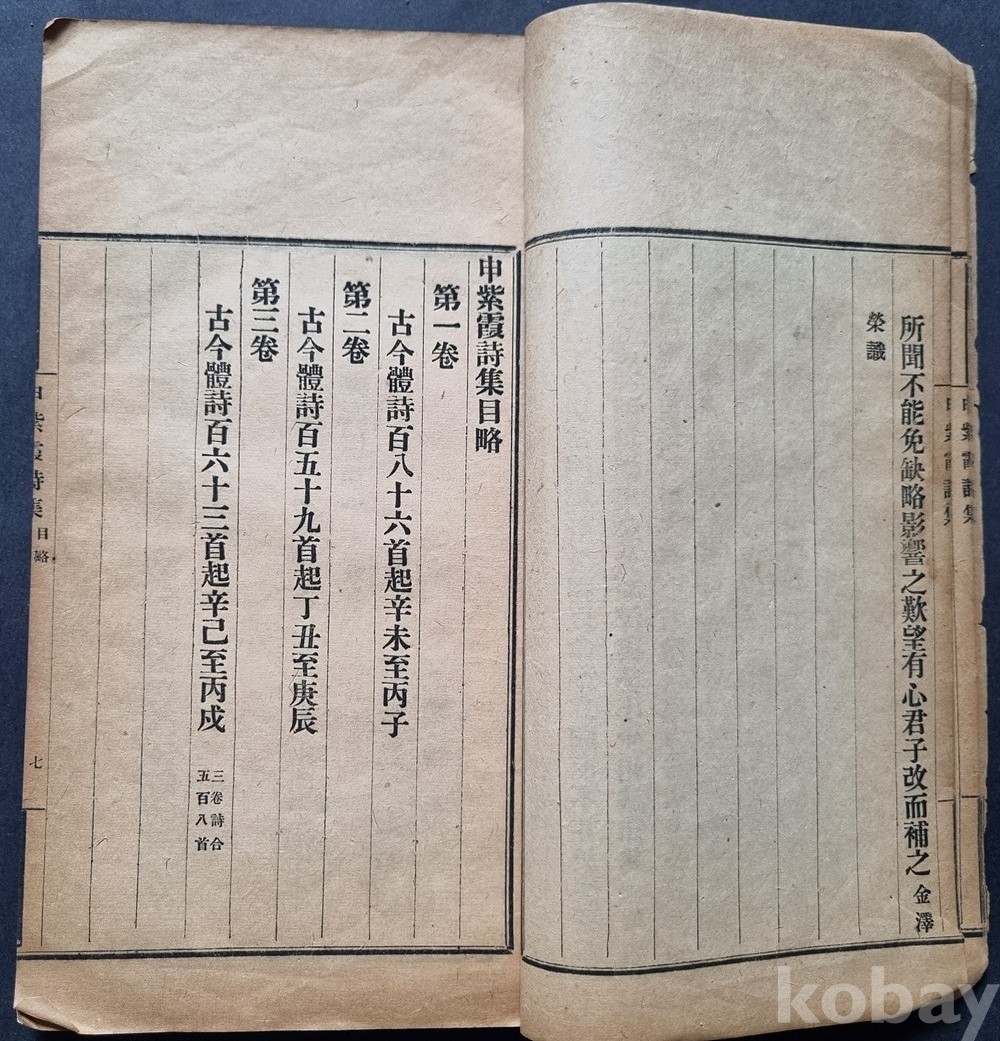 所聞不能免缺略影響之歎望有心君子改而補之金澤
榮識
申紫霞詩集目略
第一卷
古今體詩百八十六首起辛未至丙子
第二卷
古今體詩百五十九首起丁丑至庚辰
第三卷
古今體詩百六十三首起辛己至丙戍
三卷詩合
五百八首
申紫霞詩集
目略
七
申紫霞詩集
申紫霞詩集
kobay